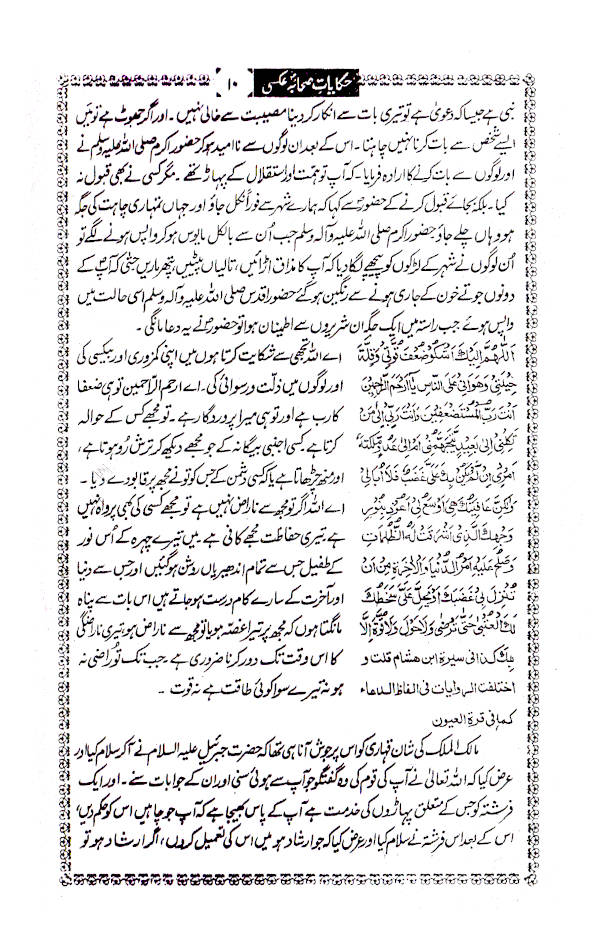 حکایاتِ صحابہؓ عکسی ۱۰
نبی ہے جیسا کہ دعویٰ ہے تو تیری بات سے انکار کر دینا مصیبت سے خالی نہیں۔ اور اگر جھوٹ ہے تو میں
ایسے شخص سے بات کرنا نہیں چاہتا۔ اس کے بعد ان لوگوں سے ناامید ہو کر حضور اکرم صلی اللہ علیہ وسلم نے
اور لوگوں سے بات کرنے کا ارادہ فرمایا۔ کہ آپ تو ہمت اور استقلال کے پہاڑ تھے۔ مگر کسی نے بھی قبول نہ
کیا۔ بلکہ بجائے قبول کرنے کے حضورؐ سے کہا کہ ہمارے شہر سے فوراً نکل جاؤ اور جہاں تمہاری چاہت کی جگہ
ہو وہاں چلے جاؤ حضور اکرم صلی اللہ علیہ وآلہ وسلم جب اُن سے بالکل مایوس ہو کر واپس ہونے لگے تو
اُن لوگوں نے شہر کے لڑکوں کو پیچھے لگا دیا کہ آپ کا مذاق اڑائیں، تالیاں پیٹیں، پتھر ماریں حتیٰ کہ آپؐ کے
دونوں جوتے خون کے جاری ہونے سے رنگین ہو گئے حضور اقدس صلی اللہ علیہ وآلہ وسلم اسی حالت میں
واپس ہوئے جب راستہ میں ایک جگہ ان شریروں سے اطمینان ہوا تو حضورؐ نے یہ دعا مانگی۔
اَللّٰهُمَّ اِلَيْكَ اَشْكُوْ ضُعْفَ قُوَّتِيْ وَقِلَّةَ
حِيْلَتِيْ وَهَوَانِيْ عَلَى النَّاسِ يَا اَرْحَمَ الرَّاحِمِيْنَ
اَنْتَ رَبُّ الْمُسْتَضْعَفِيْنَ وَاَنْتَ رَبِّيْ اِلٰى مَنْ
تَكِلُنِيْ اِلٰى بَعِيْدٍ يَتَجَهَّمُنِيْ اَمْ اِلٰى عَدُوٍّ مَلَّكْتَهٗ
اَمْرِيْ اِنْ لَّمْ يَكُنْ بِكَ عَلَيَّ غَضَبٌ فَلَا اُبَالِيْ
وَلٰكِنْ عَافِيَتُكَ هِيَ اَوْسَعُ لِيْ اَعُوْذُ بِنُوْرِ
وَجْهِكَ الَّذِيْ اَشْرَقَتْ لَهُ الظُّلُمَاتُ
وَصَلُحَ عَلَيْهِ اَمْرُ الدُّنْيَا وَالْاٰخِرَةِ مِنْ اَنْ
تُنْزِلَ بِيْ غَضَبَكَ اَوْ يَحِلَّ عَلَيَّ سَخَطُكَ
لَكَ الْعُتْبٰى حَتّٰى تَرْضٰى وَلَا حَوْلَ وَلَا قُوَّةَ اِلَّا
بِكَ كذا فى سيرة ابن هشام قلت و
اختلفت الروايات فى الفاظ الدعاء
كما فى قرة العيون
اے اللہ تجھی سے شکایت کرتا ہوں میں اپنی کمزوری اور بیکسی کی
اور لوگوں میں ذلّت و رسوائی کی۔ اے ارحم الراحمین تو ہی ضعفا
کا رب ہے اور تو ہی میرا پروردگار ہے۔ تو مجھے کس کے حوالہ
کرتا ہے کسی اجنبی بیگانہ کے جو مجھے دیکھ کر ترش رُو ہوتا ہے،
اور منھ چڑھاتا ہے یا کہ کسی دشمن کے جس کو تو نے مجھ پر قابو دے دیا۔
اے اللہ اگر تو مجھ سے ناراض نہیں ہے تو مجھے کسی کی بھی پرواہ نہیں
ہے تیری حفاظت مجھے کافی ہے میں تیرے چہرہ کے اُس نور
کے طفیل جس سے تمام اندھیریاں روشن ہو گئیں اور جس سے دنیا
اور آخرت کے سارے کام درست ہو جاتے ہیں اس بات سے پناہ
مانگتا ہوں کہ مجھ پر تیرا غصّہ ہو یا تو مجھ سے ناراض ہو تیری ناراضگی
کا اس وقت تک دور کرنا ضروری ہے۔ جب تک تُو راضی نہ
ہو نہ تیرے سوا کوئی طاقت ہے نہ قوت۔
مالک الملک کی شان قہاری کو اس پر جوش آنا ہی تھا کہ حضرت جبرئیل علیہ السلام نے آکر سلام کیا اور
عرض کیا کہ اللہ تعالیٰ نے آپ کی قوم کی وہ گفتگو جو آپ سے ہوئی سنی اور ان کے جوابات سنے۔ اور ایک
فرشتہ کو جس کے متعلق پہاڑوں کی خدمت ہے آپ کے پاس بھیجا ہے کہ آپ جو چاہیں اس کو حکم دیں،
اس کے بعد اس فرشتہ نے سلام کیا اور عرض کیا کہ جو ارشاد ہو میں اس کی تعمیل کروں، اگر ارشاد ہو تو